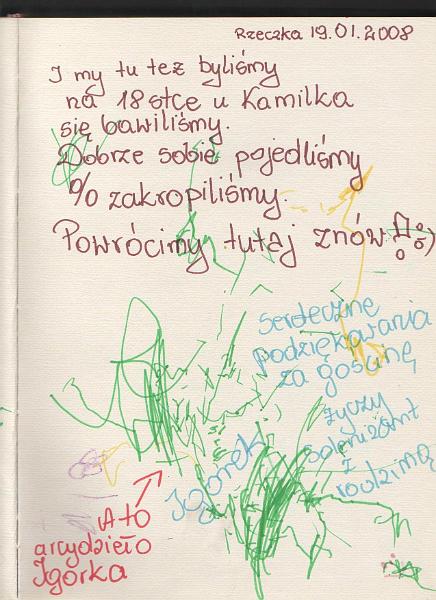 Rzeczka 19.01.2008
I my tu też byliśmy
na 18stce u Kamilka
się bawiliśmy.
Dobrze sobie pojedliśmy
% zakropiliśmy.
Powrócimy tutaj znów!!:)
Serdeczne
podziękowania
za gościnę
życzy
Solenizant
z
rodziną
Igorek
A to
arcydzieło
Igorka